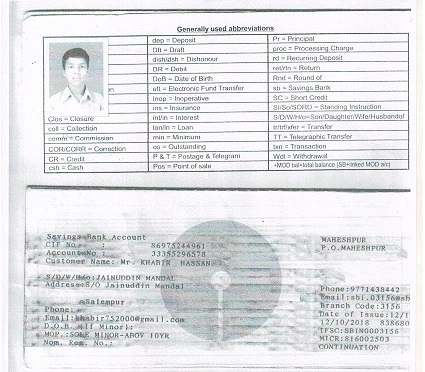 Generally used abbreviations
dep = Deposit
Dft = Draft
dish/dsh = Dishonour
DR = Debit
DoB = Date of Birth
eft = Electronic Fund Transfer
Inop = Inoperative
ins = Insurance
int/in = Interest
lon/ln = Loan
min = Minimum
os = Outstanding
P & T = Postage & Telegram
Pos = Point of sale
Clos = Closure
coll = Collection
comm = Commission
COR/CORR = Correction
CR = Credit
csh = Cash
Pr = Principal
proc = Processing Charge
rd = Recurring Deposit
ret/rtn = Return
Rnd = Round of
sb = Savings Bank
SC = Short Credit
SI/So/SORD = Standing Instruction
S/D/W/H/o=Son/Daughter/Wife/Husbandof
tr/trf/xfer = Transfer
TT = Telegraphic Transfer
txn = Transaction
Wdl = Withdrawal
+MOD bal=total balance (SB+linked MOD a/c)
Savings Bank Account
CIF No. : 86975244961
Account No : 33355296578
Customer Name: Mr. KHABIR HASSAN
S/D/W/H/o: JAINUDDIN MANDAL
Address: S/O Jainuddin Mandal
Salempur
Phone:
Email: khabir752000@gmail.com
D.O.B. (If Minor):
MOP.: SOLE MINOR-ABOV 10YR
Nom. Reg. No.:
MAHESHPUR
P.O.MAHESHPUR
Phone:9771438442
Email:sbi.03156@sb
Branch Code:3156
Date of Issue:12/1
12/10/2018 838680
IFSC:SBIN0003156
MICR:816002503
CONTINUATION